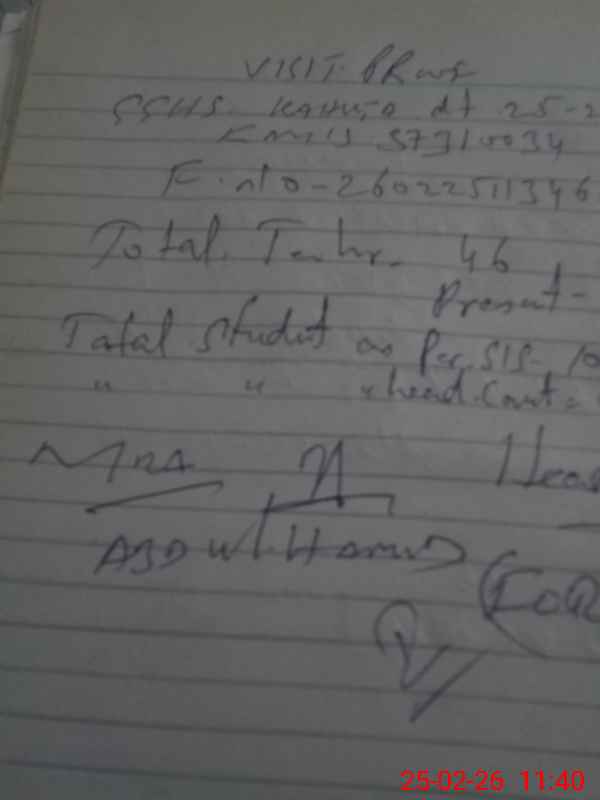 VISIT PRoof
GGHS KAHUTA dt 25-2
EMIS 37310034
F. no-26022511346
Total Teachr. 46
Present-
Total Student as Per.SIS- 10
" " " head.Count=
MEA Hea
ABDUL HAMID
25-02-26 11:40